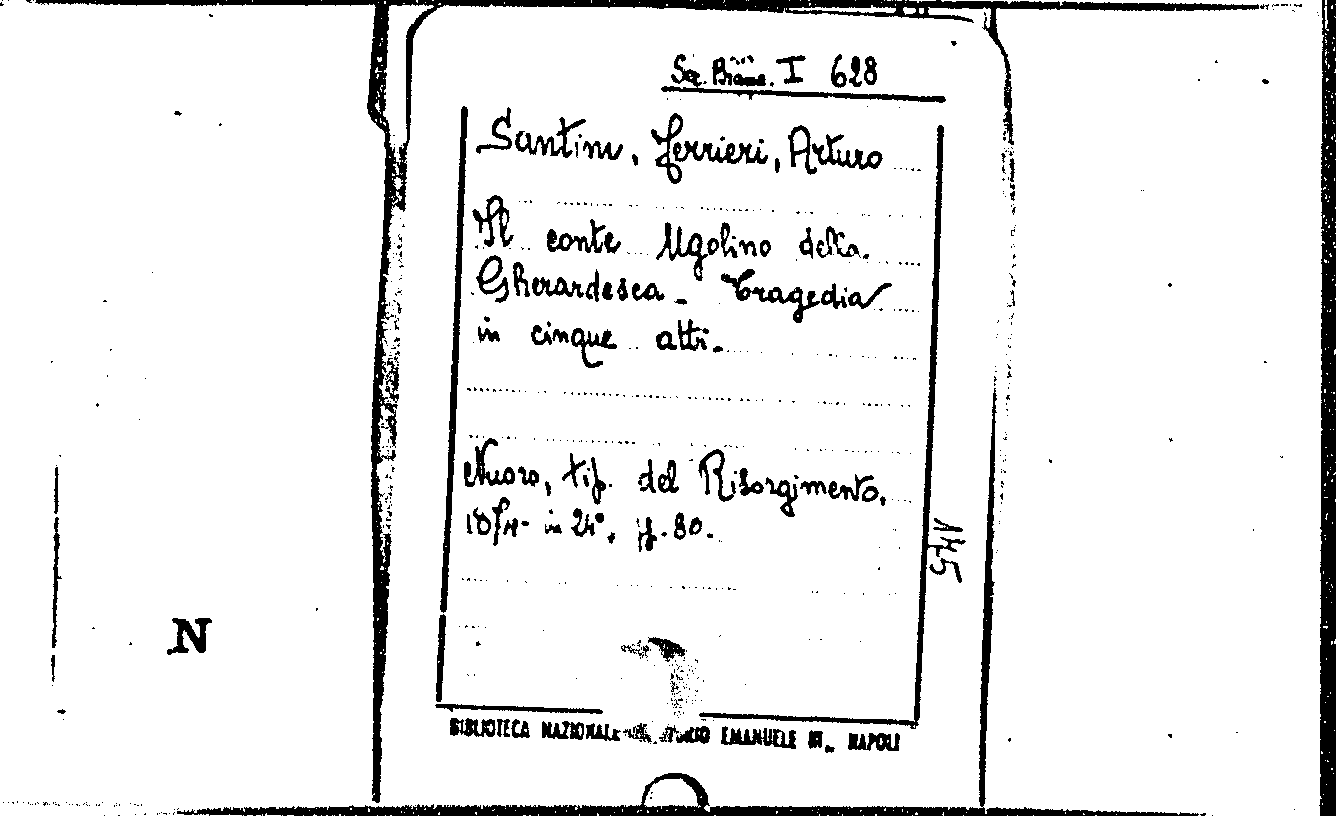 I 628
Santini, Ferrieri, Arturo
Il conte Ugolino della
Gherardesca - Tragedia
in cinque atti.
Nuoro, tip. del Risorgimento,
in 24°, p. 80.
145
N
BIBLIOTECA NAZIONALE EMANUELE III„ NAPOLI